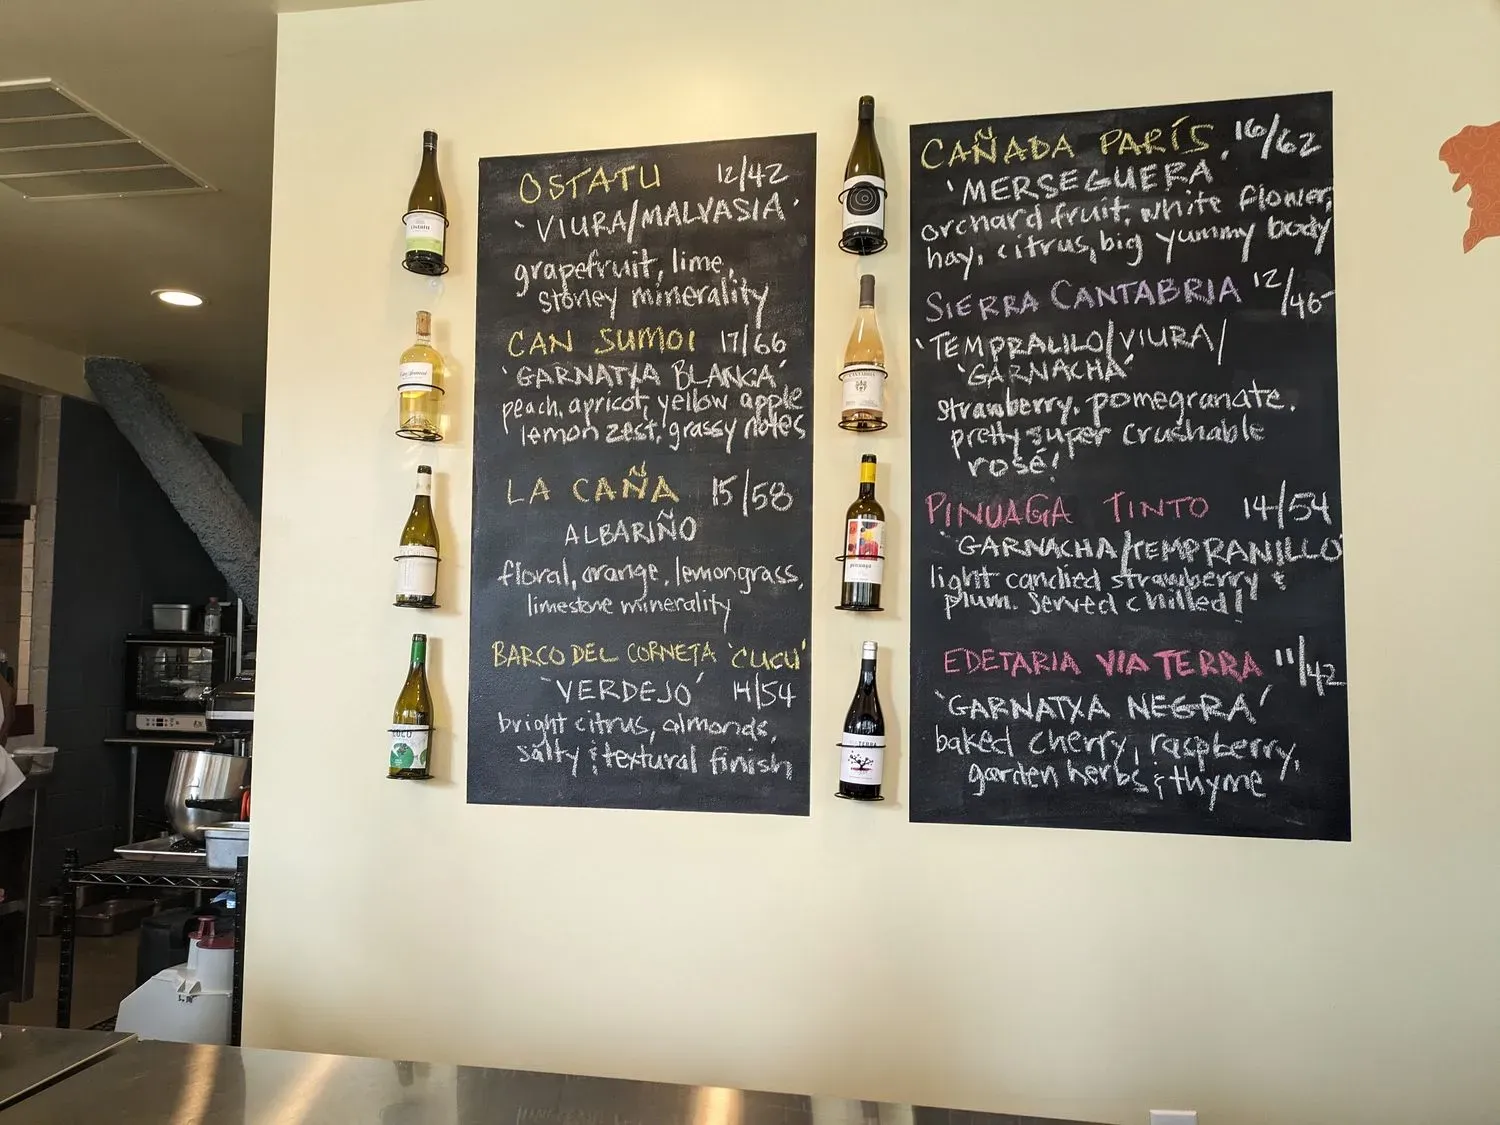 OSTATU 12/42
'VIURA/MALVASIA'
grapefruit, lime,
stoney minerality
CAN SUMOI 17/66
'GARNATXA BLANCA'
peach, apricot, yellow apple
lemon zest, grassy notes
LA CAÑA 15/58
ALBARIÑO
floral, orange, lemongrass,
limestone minerality
BARCO DEL CORNETA 'CUCU'
'VERDEJO' 14/54
bright citrus, almonds,
salty & textural finish
CAÑADA PARÍS 16/62
'MERSEGUERA'
orchard fruit, white flower,
hay, citrus, big yummy body
SIERRA CANTABRIA 12/46
'TEMPRALILO/VIURA/
'GARNACHA'
strawberry, pomegranate.
pretty super crushable
rosé!
PINUAGA TINTO 14/54
GARNACHA/TEMPRANILLO
light candied strawberry &
plum. Served chilled!
EDETARIA VIA TERRA 11/42
'GARNATXA NEGRA'
baked cherry, raspberry,
garden herbs & thyme